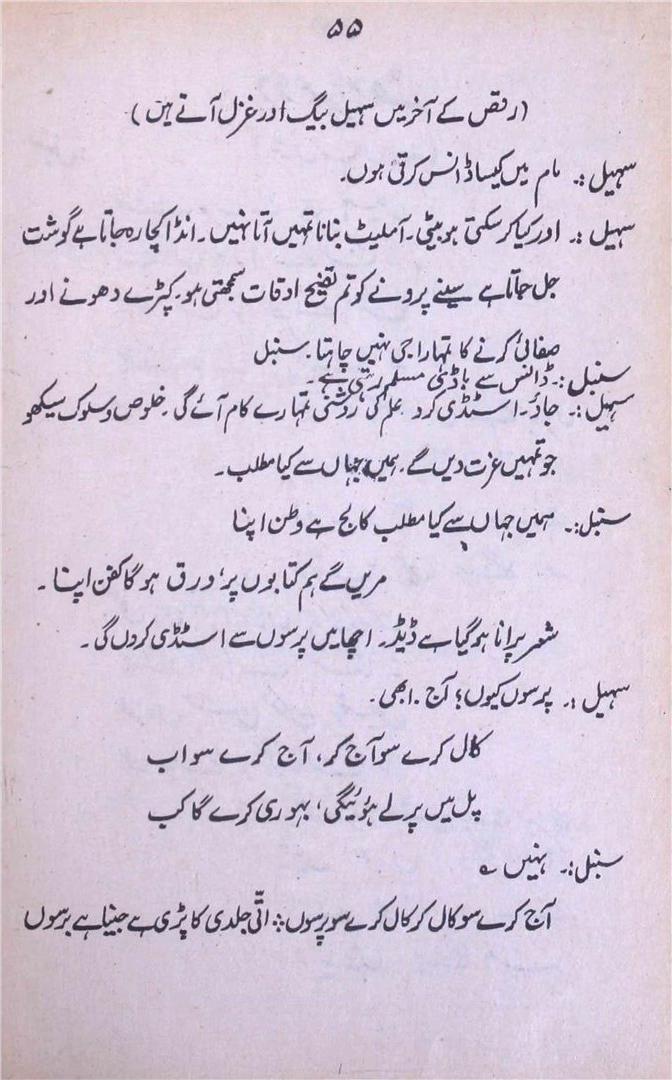 ۵۵
(رقص کے آخر میں سہیل بیگ اور غزل آتے ہیں)
سہیل :۔ مام میں کیسا ڈانس کرتی ہوں۔
سہیل :۔ اور کیا کر سکتی ہو بیٹی۔ آملیٹ بنانا تمہیں آتا نہیں۔ انڈا کچا رہ جاتا ہے گوشت
جل جاتا ہے سینے پرونے کو تم تضیح اوقات سمجھتی ہو۔ کپڑے دھونے اور
صفائی کرنے کا تمہارا جی نہیں چاہتا۔ سنبل
سنبل :۔ ڈانس سے باڈی مسلم رہتی ہے۔
سہیل :۔ جاؤ۔ اسٹڈی کرو علم کی روشنی تمہارے کام آئے گی۔ خلوص و سلوک سیکھو
جو تمہیں عزت دیں گے۔ ہمیں جہاں سے کیا مطلب۔
سنبل :۔ ہمیں جہاں سے کیا مطلب کالج ہے وطن اپنا
مریں گے ہم کتابوں پر، ورق ہو گا کفن اپنا۔
شعر پرانا ہو گیا ہے ڈیڈ۔ اچھا میں پرسوں سے اسٹڈی کروں گی۔
سہیل :۔ پرسوں کیوں؛ آج۔ ابھی۔
کال کرے سو آج کر، آج کرے سو اب
پل میں پرلے ہوئیگی، بہوری کرے گا کب
سنبل :۔ نہیں ؎
آج کرے سو کال کر کال کرے سو پرسوں ؞ اتّی جلدی کا پڑی ہے جینا ہے برسوں